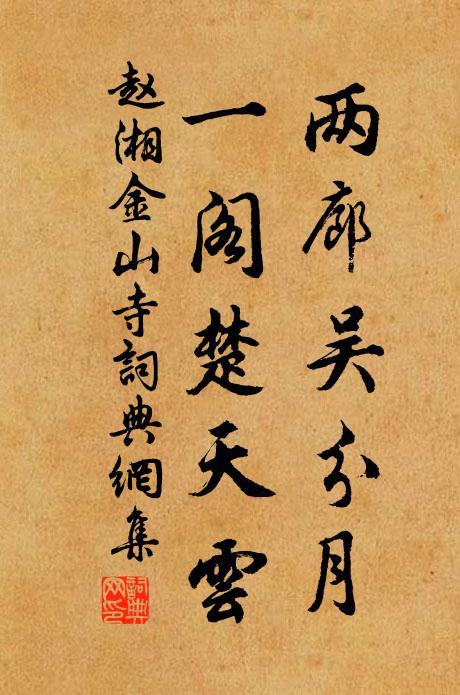 两廊吴分月
一阁楚天雲
赵湘金山寺詞典網集
詞典
网印